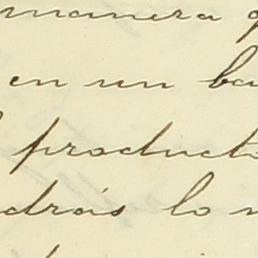 manera
en un ba
producto
drás lo